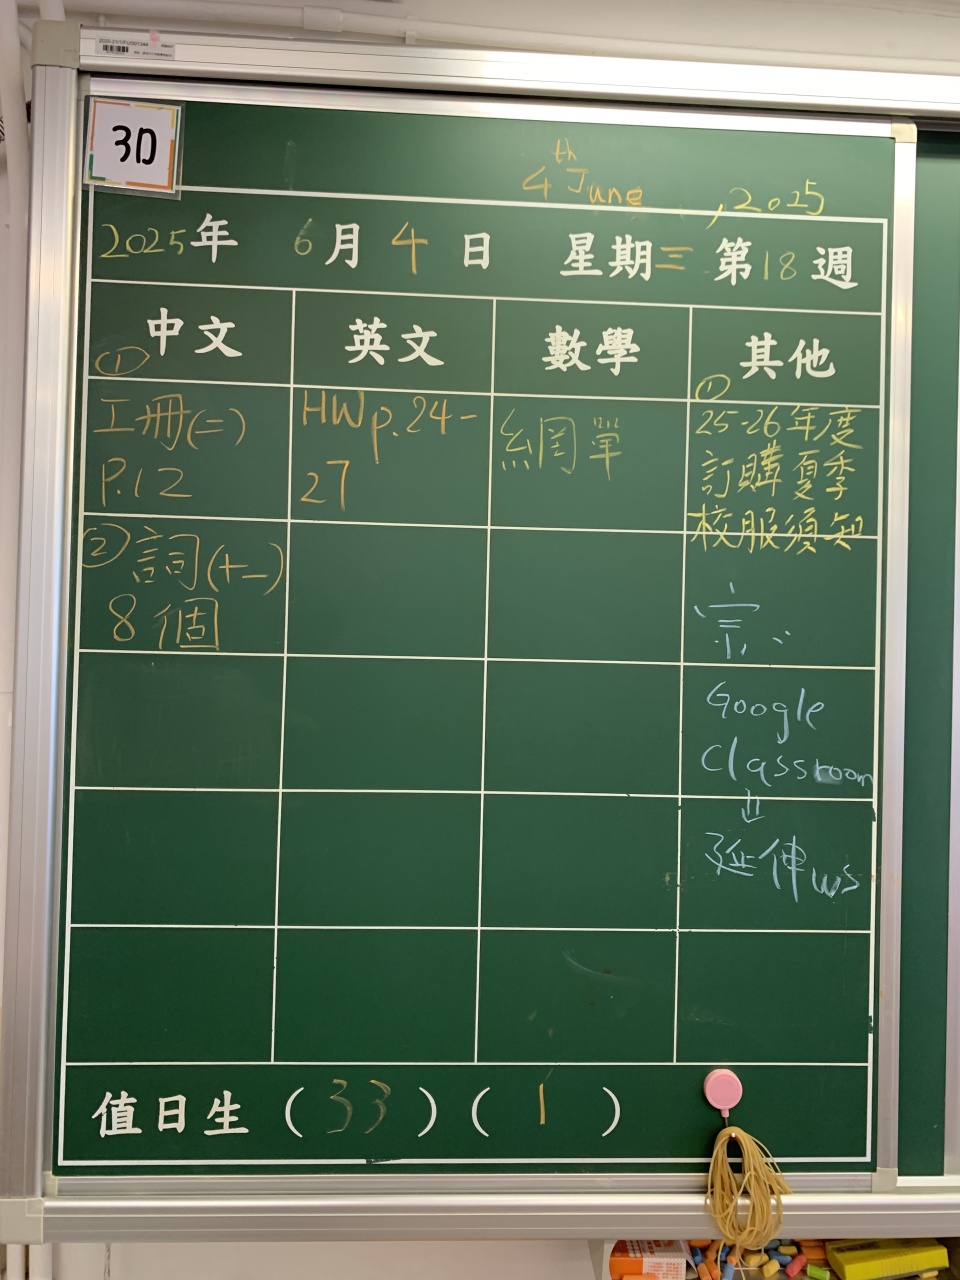 3D
4th June, 2025
2025年 6月4日 星期三 第18週
中文
英文
數學
其他
①
工冊(二)
P.12
②詞(十一)
8個
HWp.24-
27
網單
①
25-26年度
訂購夏季
校服須知
Google
Classroom
↓
延伸ws
值日生(33)(1)